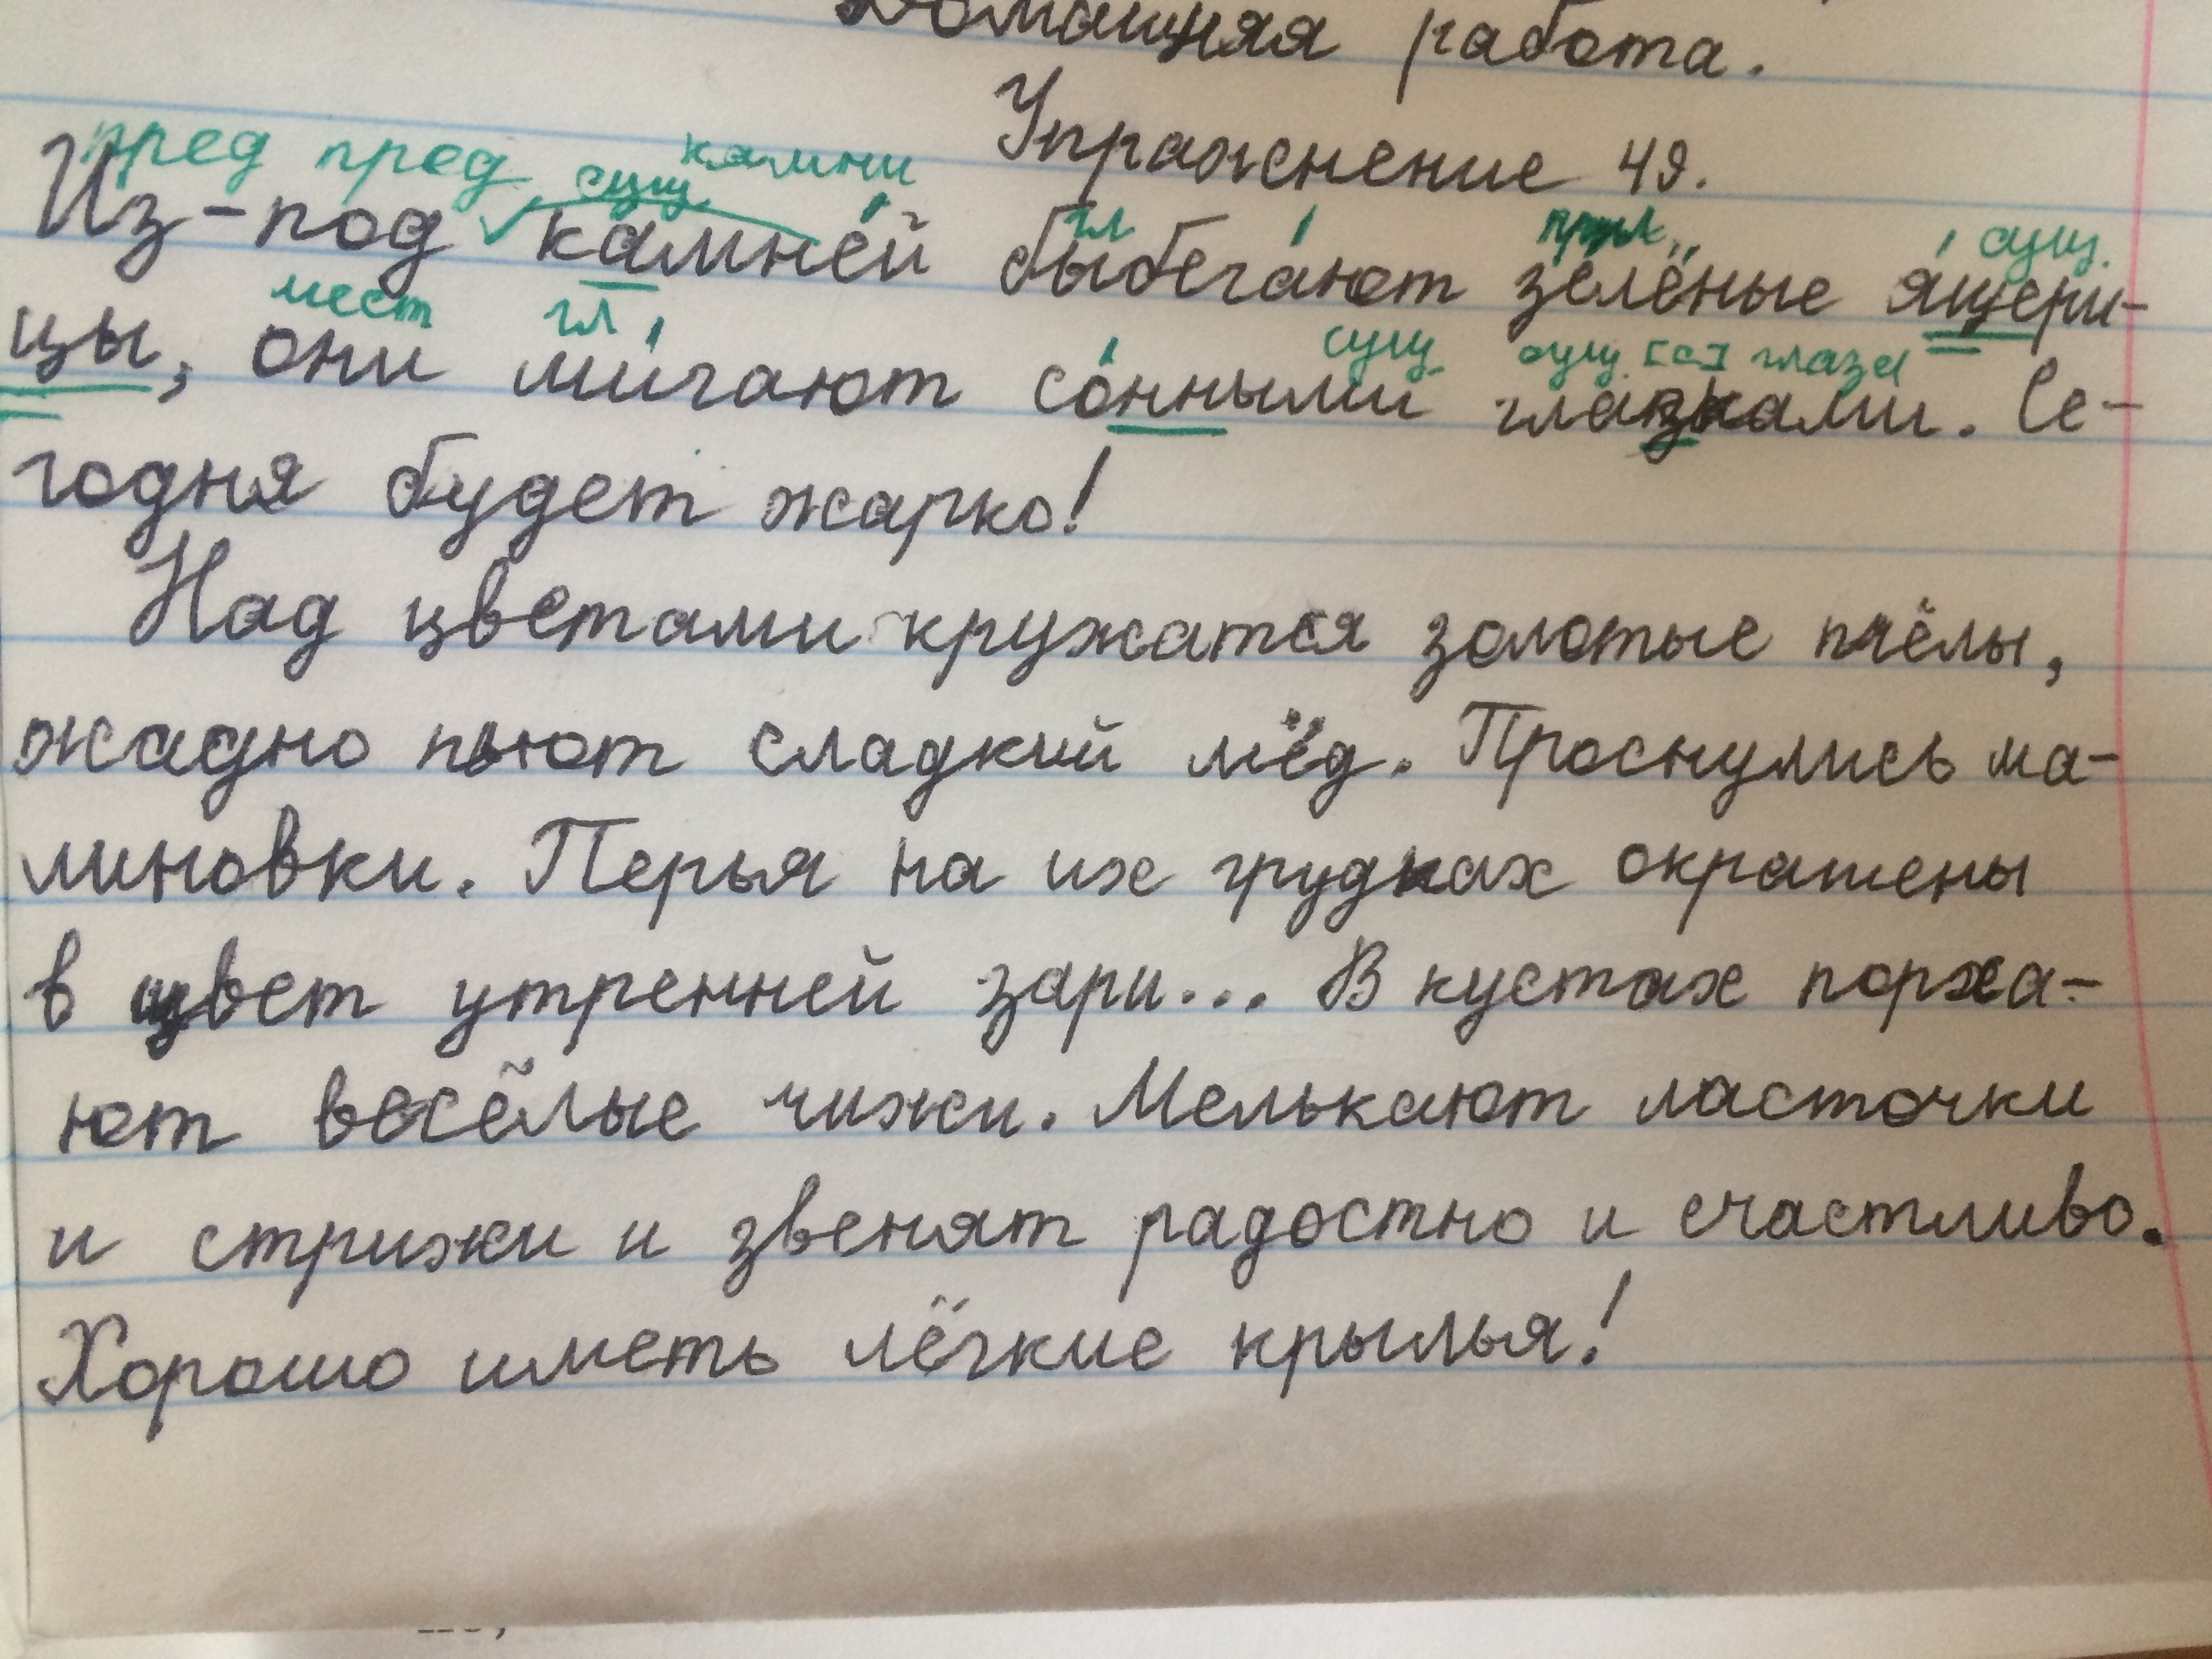 Домашняя работа.
Упражнение 49.
пред пред сущ. камни
Из-под камней выбегают зелёные ящери-
гл прил. сущ.
цы, они мигают сонными глазками. Се-
мест гл сущ. сущ. [с] глаза
годня будет жарко!
Над цветами кружатся золотые пчёлы,
жадно пьют сладкий мёд. Проснулись ма-
линовки. Перья на их грудках окрашены
в цвет утренней зари... В кустах порха-
ют весёлые чижи. Мелькают ласточки
и стрижи и звенят радостно и счастливо.
Хорошо иметь лёгкие крылья!